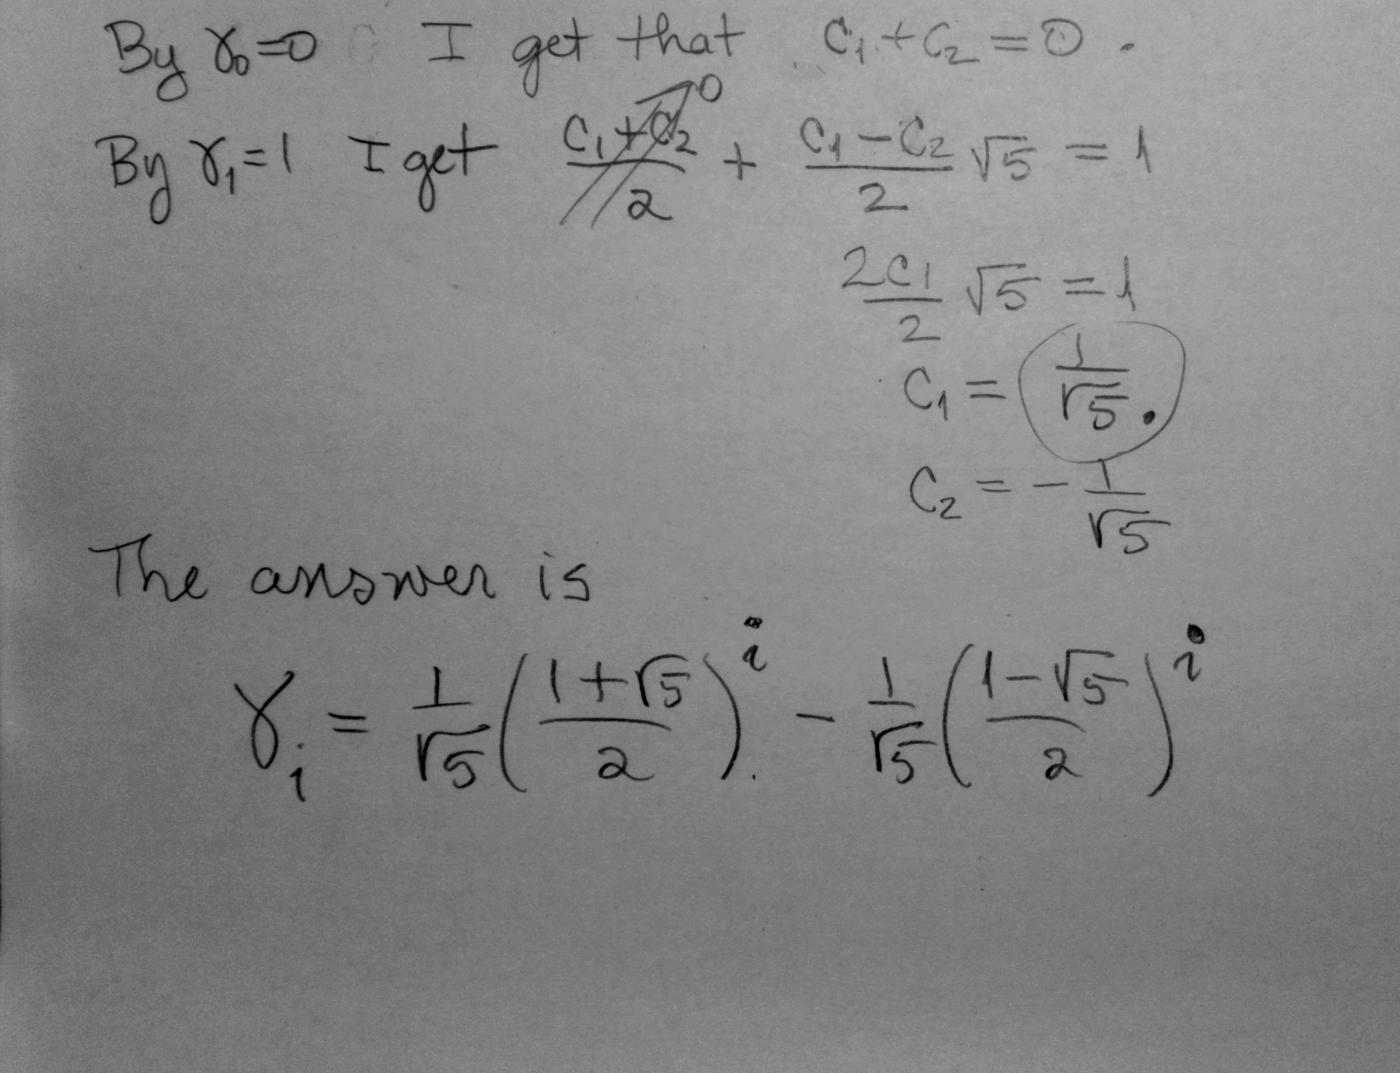 By γ₀=0 I get that c₁+c₂=0.
By γ₁=1 I get (c₁+c₂)/2 → 0 + (c₁-c₂)/2 √5 = 1
2c₁/2 √5 = 1
c₁ = 1/√5.
c₂ = -1/√5
The answer is
γᵢ = 1/√5 ((1+√5)/2)ⁱ - 1/√5 ((1-√5)/2)ⁱ